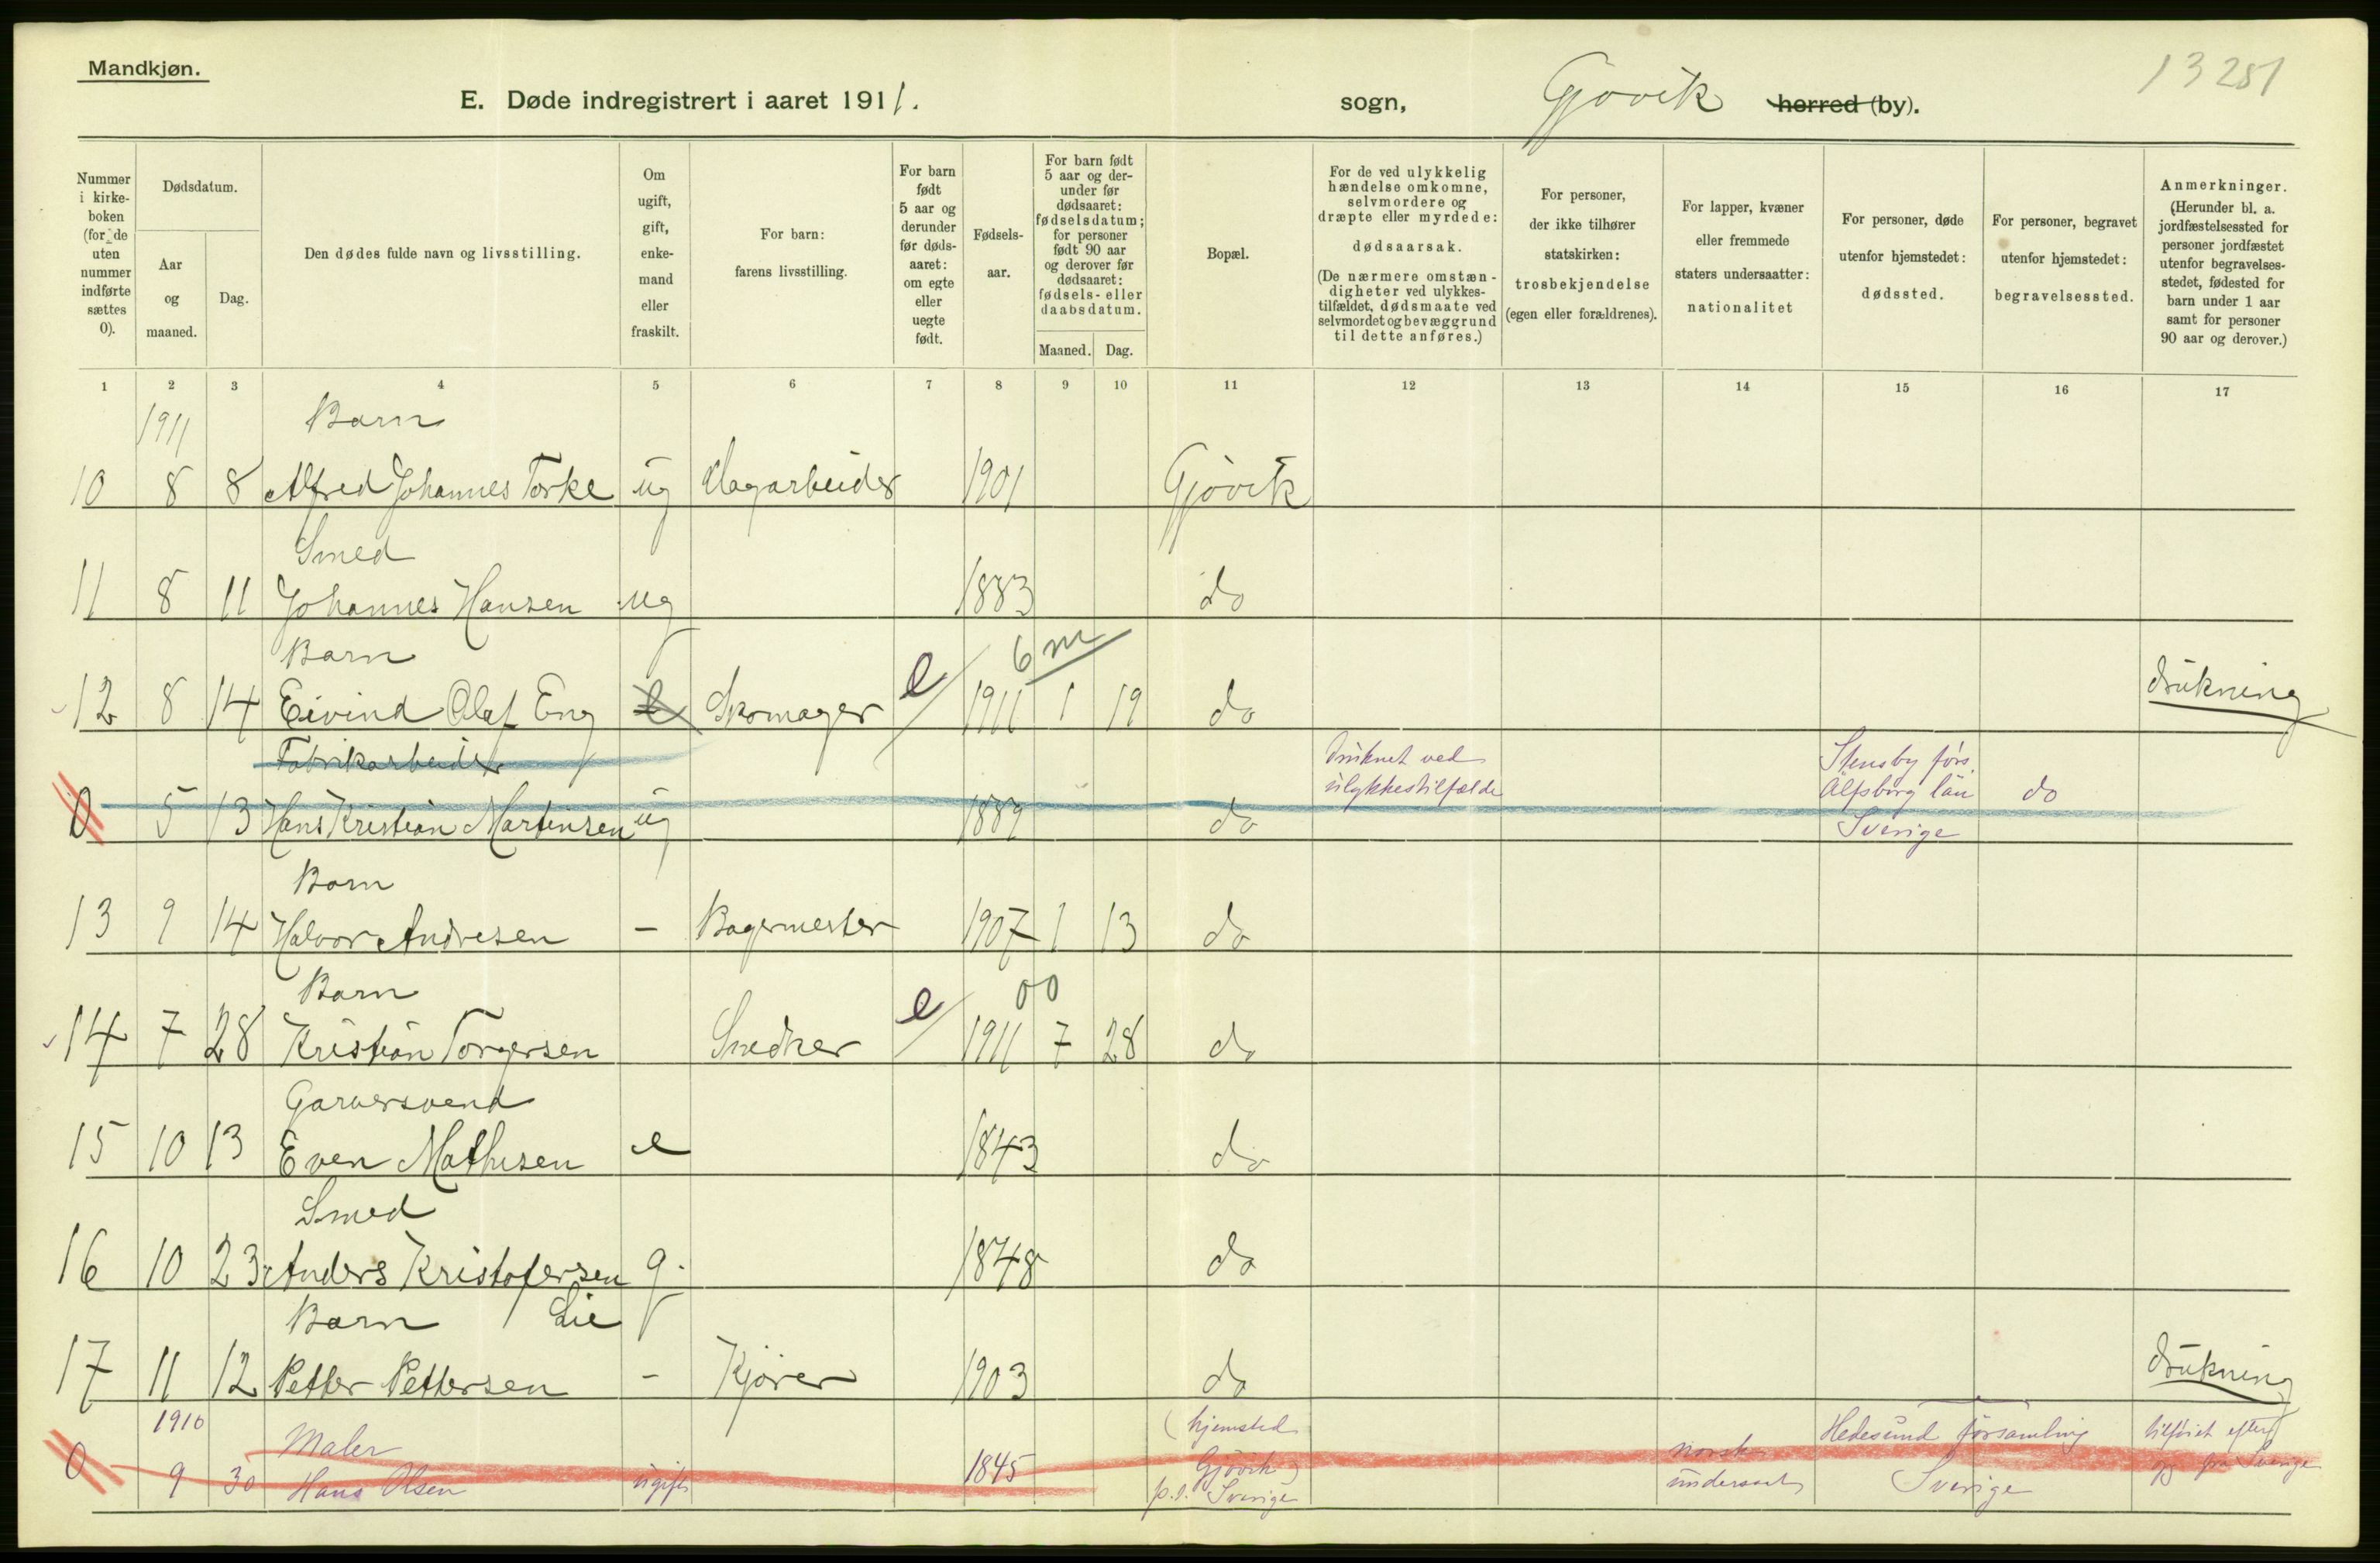 Mandkjøn.
13251
E. Døde indregistrert i aaret 1911.
sogn,
Gjøvik
herred (by).
Nummer i kirke-boken (for de uten nummer indførte sættes 0).
Dødsdatum.
Aar og maaned.
Dag.
Den dødes fulde navn og livsstilling.
Om ugift, gift, enke-mand eller fraskilt.
For barn: farens livsstilling.
For barn født 5 aar og derunder før døds-aaret: om egte eller uegte født.
Fødsels-aar.
For barn født 5 aar og der-under før dødsaaret: fødselsdatum; for personer født 90 aar og derover før dødsaaret: fødsels- eller daabsdatum.
Maaned.
Dag.
Bopæl.
For de ved ulykkelig hændelse omkomne, selvmordere og dræpte eller myrdede: dødsaarsak. (De nærmere omstæn-digheter ved ulykkes-tilfældet, dødsmaate ved selvmordet og bevæggrund til dette anføres.)
For personer, der ikke tilhører statskirken: trosbekjendelse (egen eller forældrenes).
For lapper, kvæner eller fremmede staters undersaatter: nationalitet
For personer, døde utenfor hjemstedet: dødssted.
For personer, begravet utenfor hjemstedet: begravelsessted.
Anmerkninger. (Herunder bl. a. jordfæstelsessted for personer jordfæstet utenfor begravelses-stedet, fødested for barn under 1 aar samt for personer 90 aar og derover.)
1 2 3 4 5 6 7 8 9 10 11 12 13 14 15 16 17
1911 Barn
10 8 8 Alfred Johannes Torke ug Dagarbeider 1901 Gjøvik
Smed
11 8 11 Johannes Hansen ug 1883 do
Barn 6 m
12 8 14 Eivind Olaf Eng e Skomager e 1911 1 19 do drukning
Fabrikarbeider Druknet ved Stensby förs.
ulykkestilfælde Älfsborg län do
0 5 13 Hans Kristian Martinsen ug 1889 do Sverige
Barn
13 9 14 Halvor Andresen - Bagermester 1907 1 13 do
Barn 00
14 7 28 Kristian Torgersen Snedker e 1911 7 28 do
Garversvend
15 10 13 Even Mathisen e 1843 do
Smed
16 10 23 Anders Kristofersen g. 1848 do
Barn Lie
17 11 12 Petter Pettersen - Kjører 1903 do drukning
1910 Maler (hjemsted norsk Hedesund församling tilføiet efter
0 9 30 Hans Olsen ugift 1845 Gjøvik) undersaat Sverige fra Sverige
p.t. Sverige